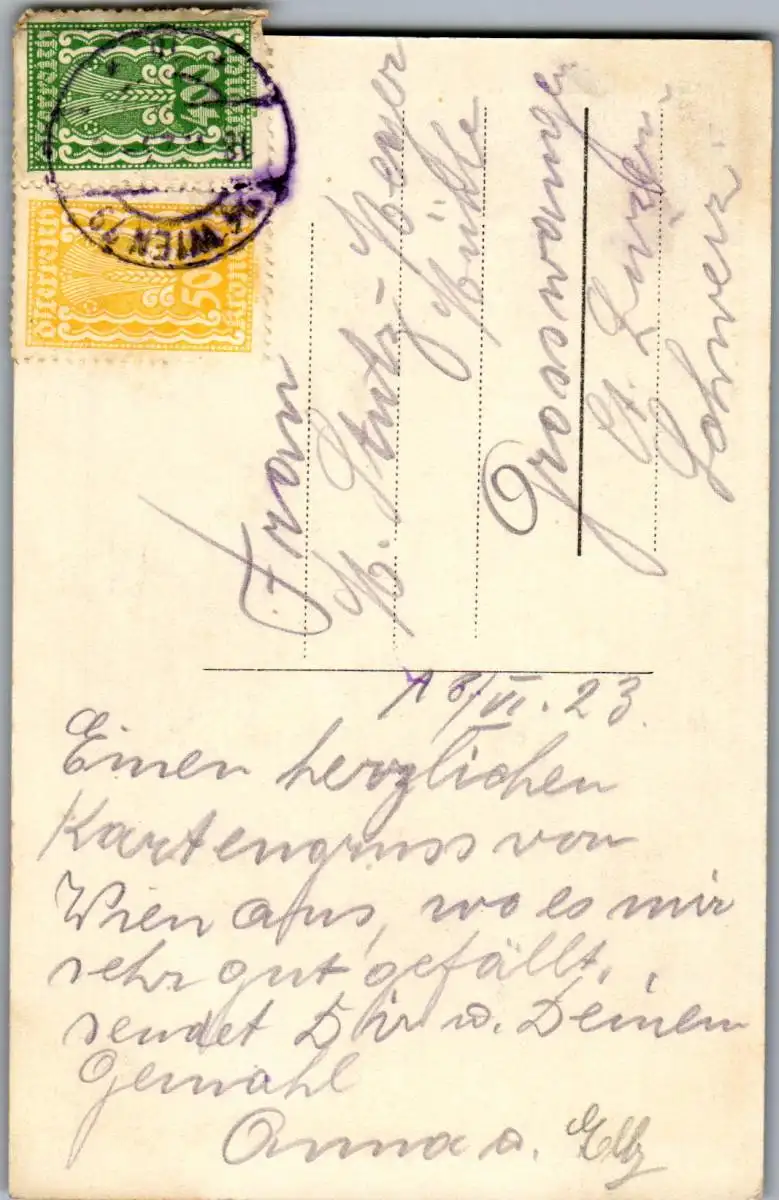 österreich
400
Kronen
österreich
50
Kronen
WIEN
Frau
M. Stutz-Meyer
Mühle
Grosswangen
Kt. Luzern
Schweiz
18/VI. 23.
Einen herzlichen
Kartengruss von
Wien aus, wo es mir
sehr gut gefällt,
sendet Dir u. Deinem
Gemahl
Anna u.